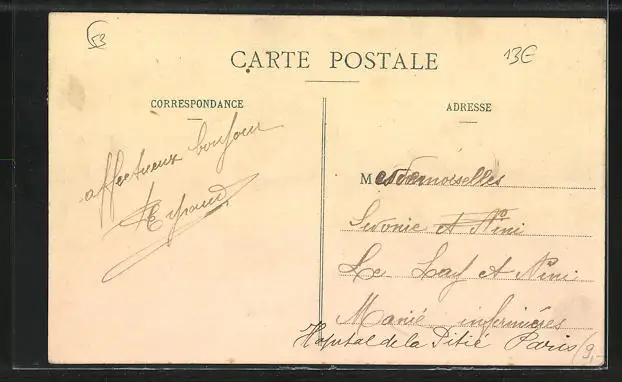 53
13€
CARTE POSTALE
CORRESPONDANCE
ADRESSE
affectueux bonjour
Mesdemoiselles
et Nini
Le et Nini
Marié infirmières
Hopital de la Pitié Paris
9,-